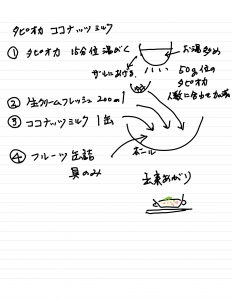 タピオカ ココナッツミルク
① タピオカ 15分位 湯がく
お湯多め
ザルにあげる
50g位の
タピオカ
人数に合わせて加減
② 生クリームフレッシュ 200ml
③ ココナッツミルク 1缶
④ フルーツ缶詰
具のみ
ボール
出来あがり